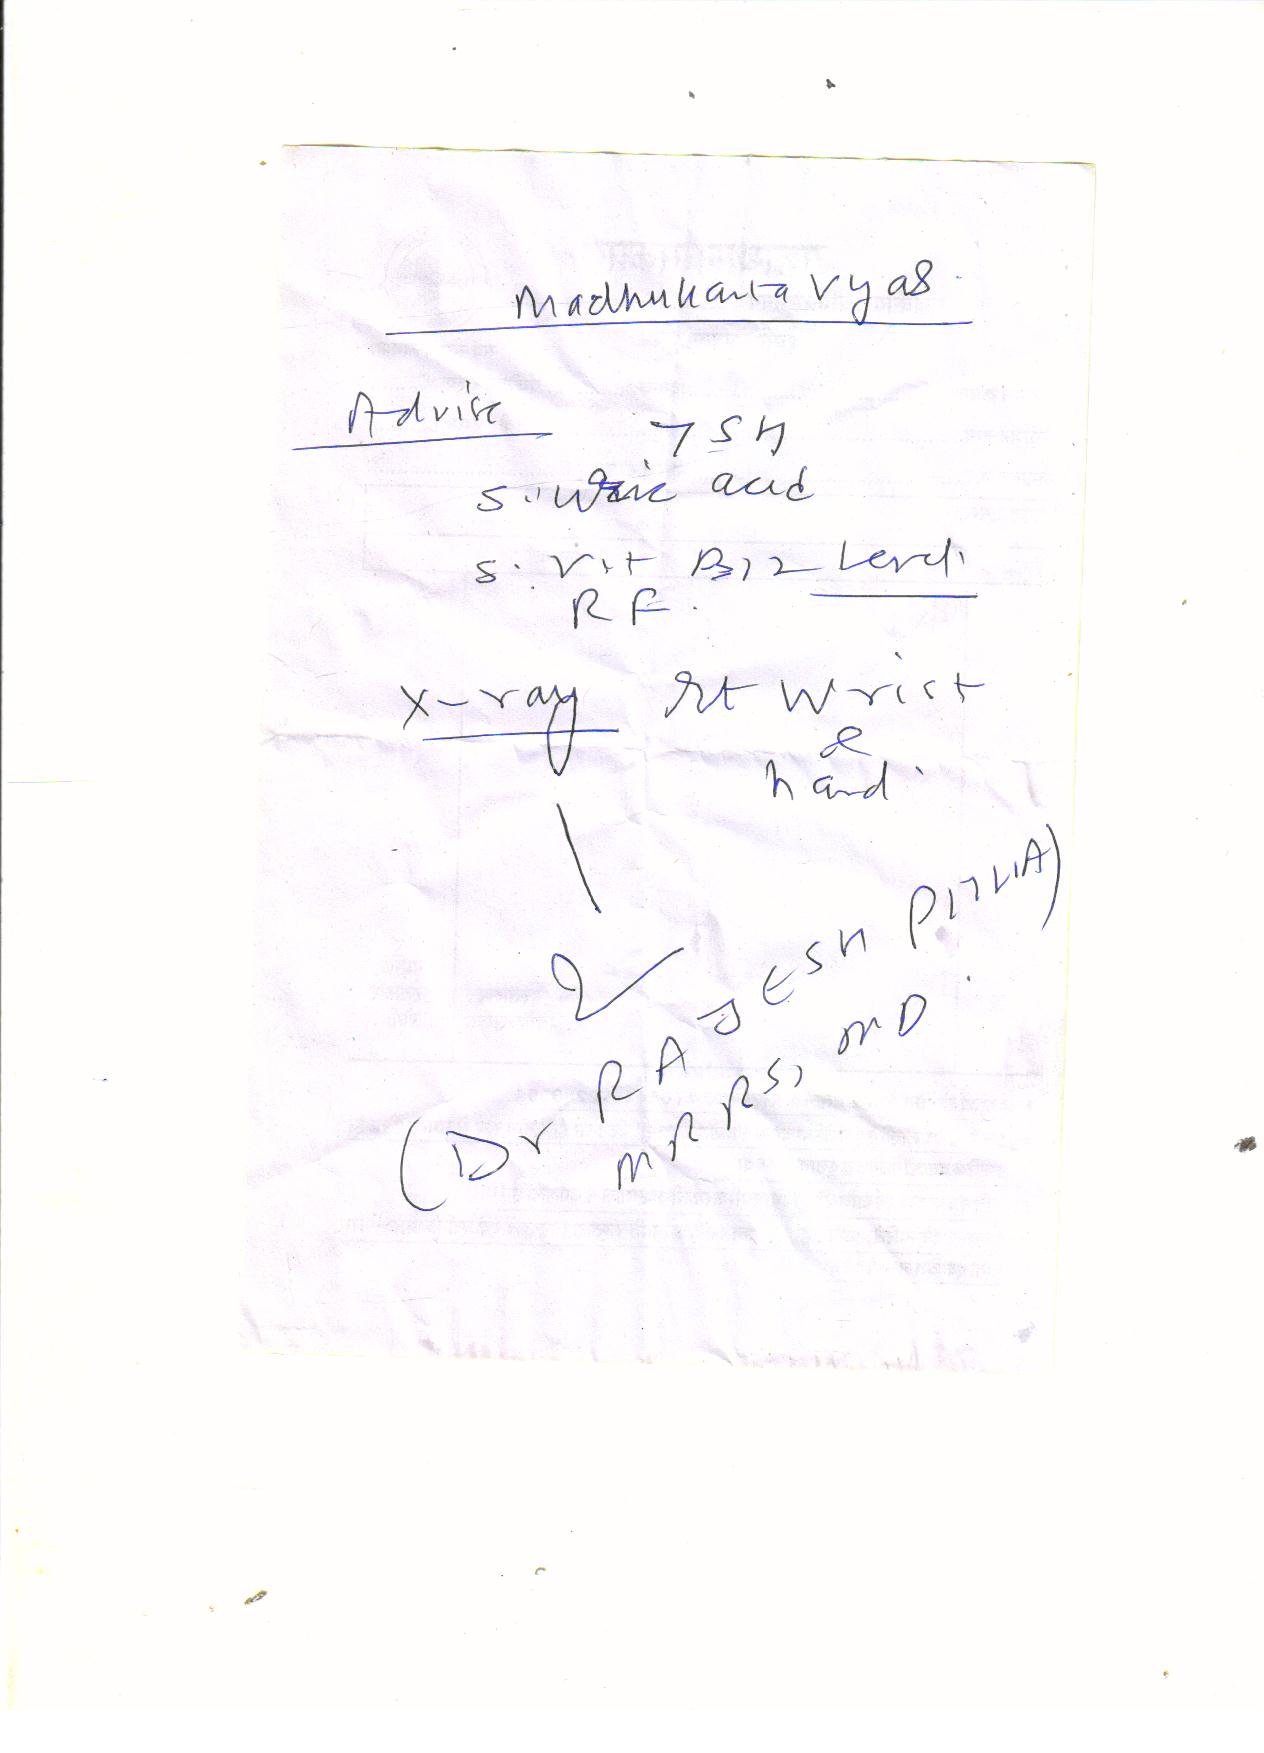 Madhukanta Vyas.
Advise
TSH
S. Uric acid
S. Vit B12 Level.
RF.
X-ray Rt Wrist
&
hand.
(Dr RAJESH PITLIA)
MBBS, MD.